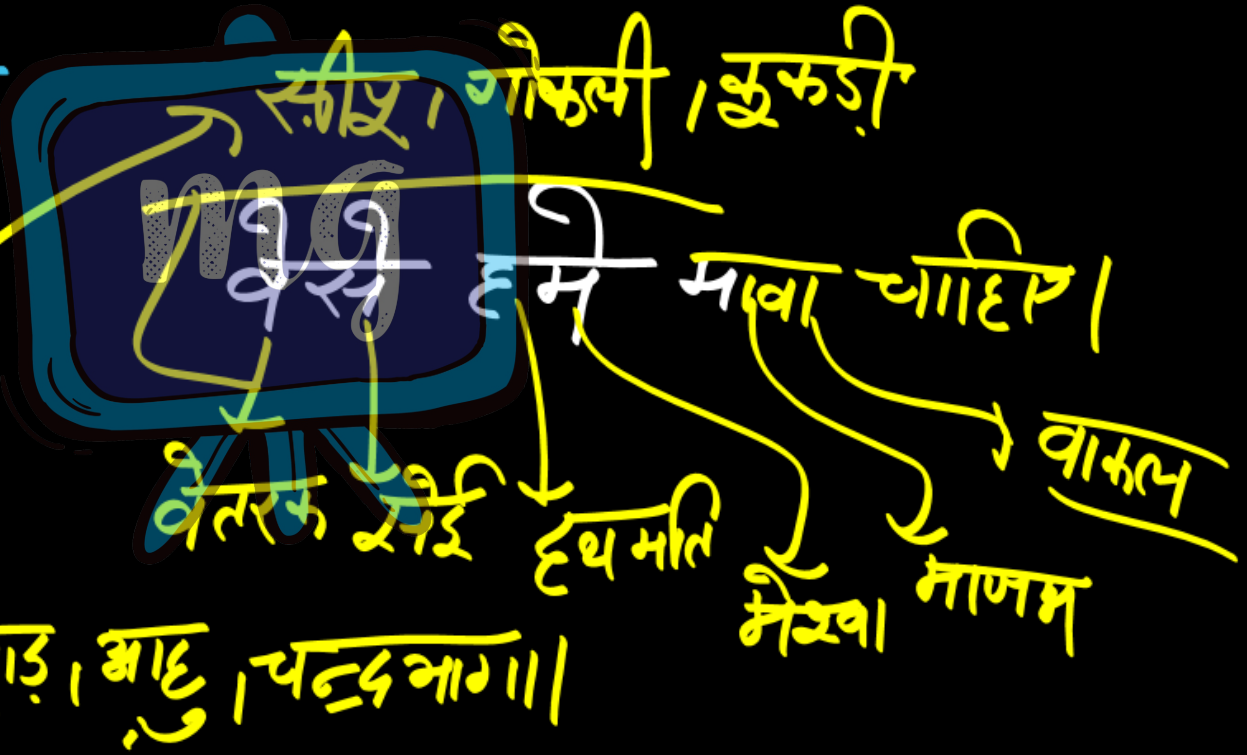 गोकली, कुकड़ी
mg
वे से हमे मावा चाहिए।
वेतरक सेई हथमति मेश्वा माजम वाकल
चन्द्रभागा।